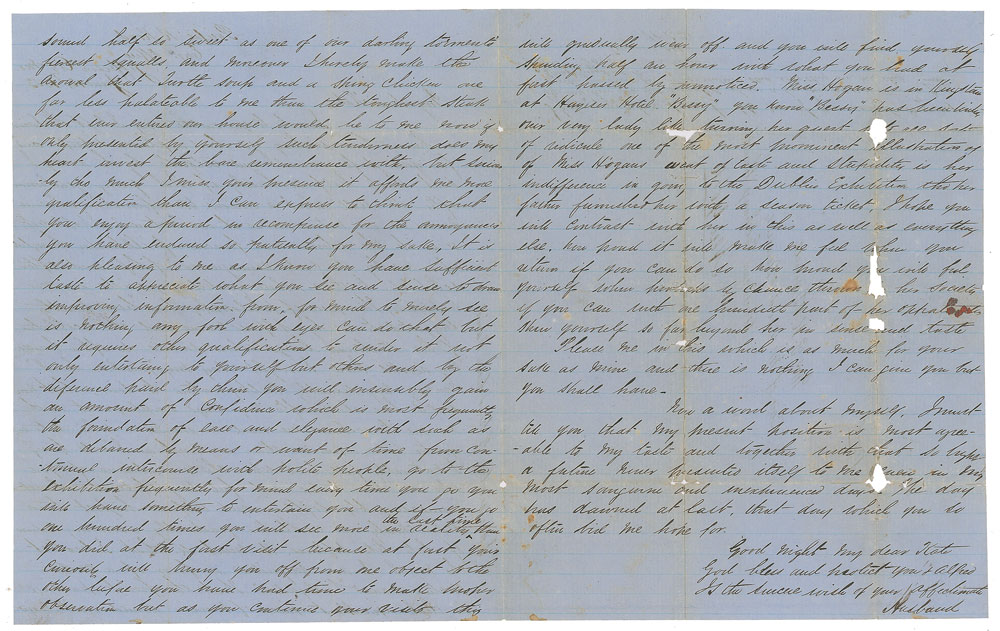 sound half so sweet as one of our darling torments
fiercest squalls and moreover I hereby make this
avowal that Turtle soup and a spring chicken are
far less palatable to me than the toughest steak
that ever entered our house would be to me now if
only presented by yourself such tenderness does my
heart invest the bare remembrance with but
by the much I miss your presence it affords me more
gratification than I can express to think that
you enjoy a period in recompense for the annoyances
you have endured so patiently for my sake, It is
also pleasing to me as I know you have sufficient
taste to appreciate what you see and sense to draw
improving information from, for mind to merely see
is nothing any fool with eyes can do that but
it requires other qualifications to render it not
only entertaing to yourself but others and by the
deference paid by them you will insensibly gain
an amount of Confidence which is most frequently
the foundation of ease and elegance with such as
are debarred by means or want of time from con-
-tinual intercourse with polite people, go to the
exhibition frequently for mind every time you go you
will have something to entertain you and if you go
one hundred times you will see more the last time in reality than
you did at the first visit because at first your
curiosity will hurry you off from one object to the
other before you have had time to make proper
observation but as you continue your visits this
will gradually wear off and you will find yourself
spending half an hour with what you had at
first passed by unnoticed. Miss Hogan is in Kingstown
at Hayes's Hotel "Bessy" you know "Bessy" has been
our very lady like turning her guest
of ridicule one of the most prominent illustrations of
of Miss Hogans want of taste and stupidity is her
indifference in going to the Dublin Exhibition tho her
father furnished her with a season ticket I hope you
will Contrast with her in this as well as everything
else. how proud it will make me feel when you
return if you can do so how proud you will feel
yourself when perhaps by chance thrown her society
if you can with one
shew yourself so far beyond her in sense and taste
Please me in this which is as much for your
sake as mine and there is nothing I can give you but
you shall have -
Now a word about myself. I must
tell you that my present position is most agree-
-able to my taste and together with that so bright
a future never presented itself to me even in my
most sanguine and inexperienced days The day
has dawned at last, that day which you so
often bid me hope for.
Good night my dear Kate
God bless and protect you & Alfred
Is the sincere wish of your affectionate
Husband